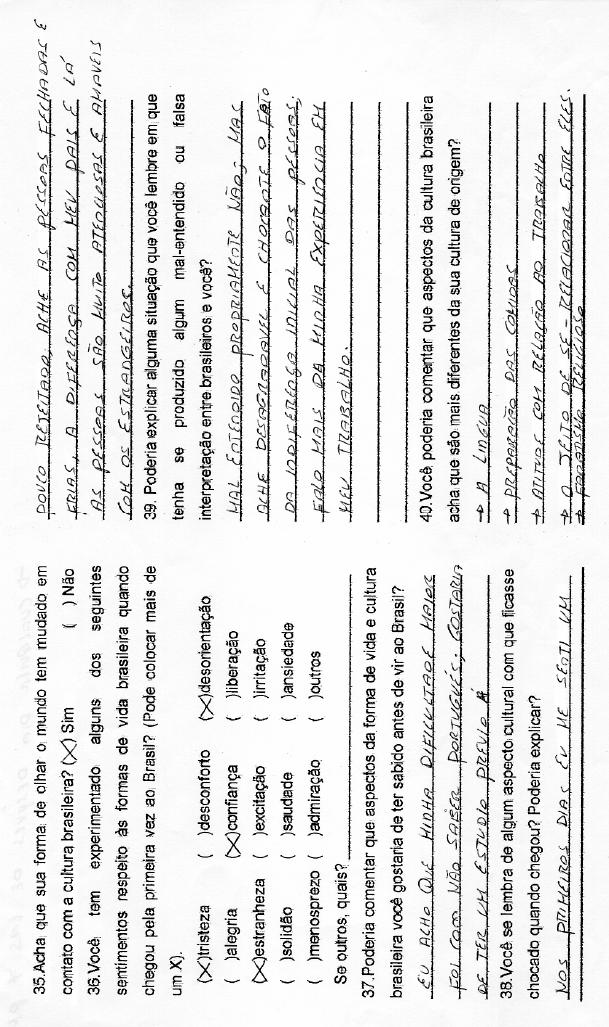 35.Acha que sua forma de olhar o mundo tem mudado em
contato com a cultura brasileira? (X) Sim ( ) Não
36.Você tem experimentado alguns dos seguintes
sentimentos respeito às formas de vida brasileira quando
chegou pela primeira vez ao Brasil? (Pode colocar mais de
um X).
(X)tristeza ( )desconforto (X)desorientação
( )alegria (X)confiança ( )liberação
(X)estranheza ( )excitação ( )irritação
( )solidão ( )saudade ( )ansiedade
( )menosprezo ( )admiração ( )outros
Se outros, quais?
37.Poderia comentar que aspectos da forma de vida e cultura
brasileira você gostaria de ter sabido antes de vir ao Brasil?
EU ACHO QUE MINHA DIFICULTADE MAIOR
FOI COM NÃO SABER PORTUGUÉS, GOSTARIA
DE TER UM ESTUDIO PREVIO
38.Você se lembra de algum aspecto cultural com que ficasse
chocado quando chegou? Poderia explicar?
NOS PRIMEIROS DIAS EU ME SENTI UM
POUCO REJEITADO, ACHE AS PESSOAS FECHADAS E
FRIAS, A DIFERENÇA COM MEU PAIS E LÁ
AS PESSOAS SÃO MUITO ATENCIOSAS E AMAVEIS
COM OS ESTRANGEIROS.
39. Poderia explicar alguma situação que você lembre em que
tenha se produzido algum mal-entendido ou falsa
interpretação entre brasileiros e você?
MAL ENTENDIDO PROPRIAMENTE NÃO, MAS
ACHE DESAGRADAVEL E CHOCANTE O FATO
DA INDIFERENÇA INICIAL DAS PESSOAS,
FALO MAIS DA MINHA EXPERIENCIA EM
MEU TRABALHO.
40.Você poderia comentar que aspectos da cultura brasileira
acha que são mais diferentes da sua cultura de origem?
→ A LINGUA
→ PREPARAÇÃO DAS COMIDAS
→ ATITUDE COM RELAÇÃO AO TRABALHO
→ O JEITO DE SE-RELACIONAR ENTRE ELES.
→ FANATISMO RELIGIOSO